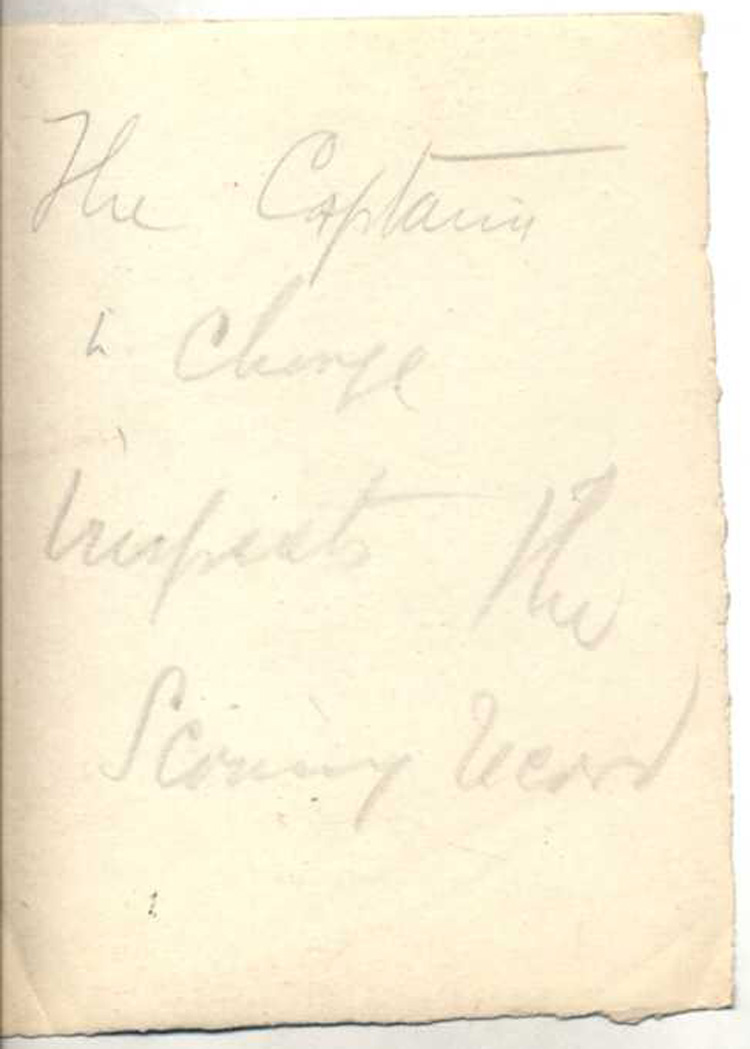 The Captain
in Charge
inspects the
Scoring Record